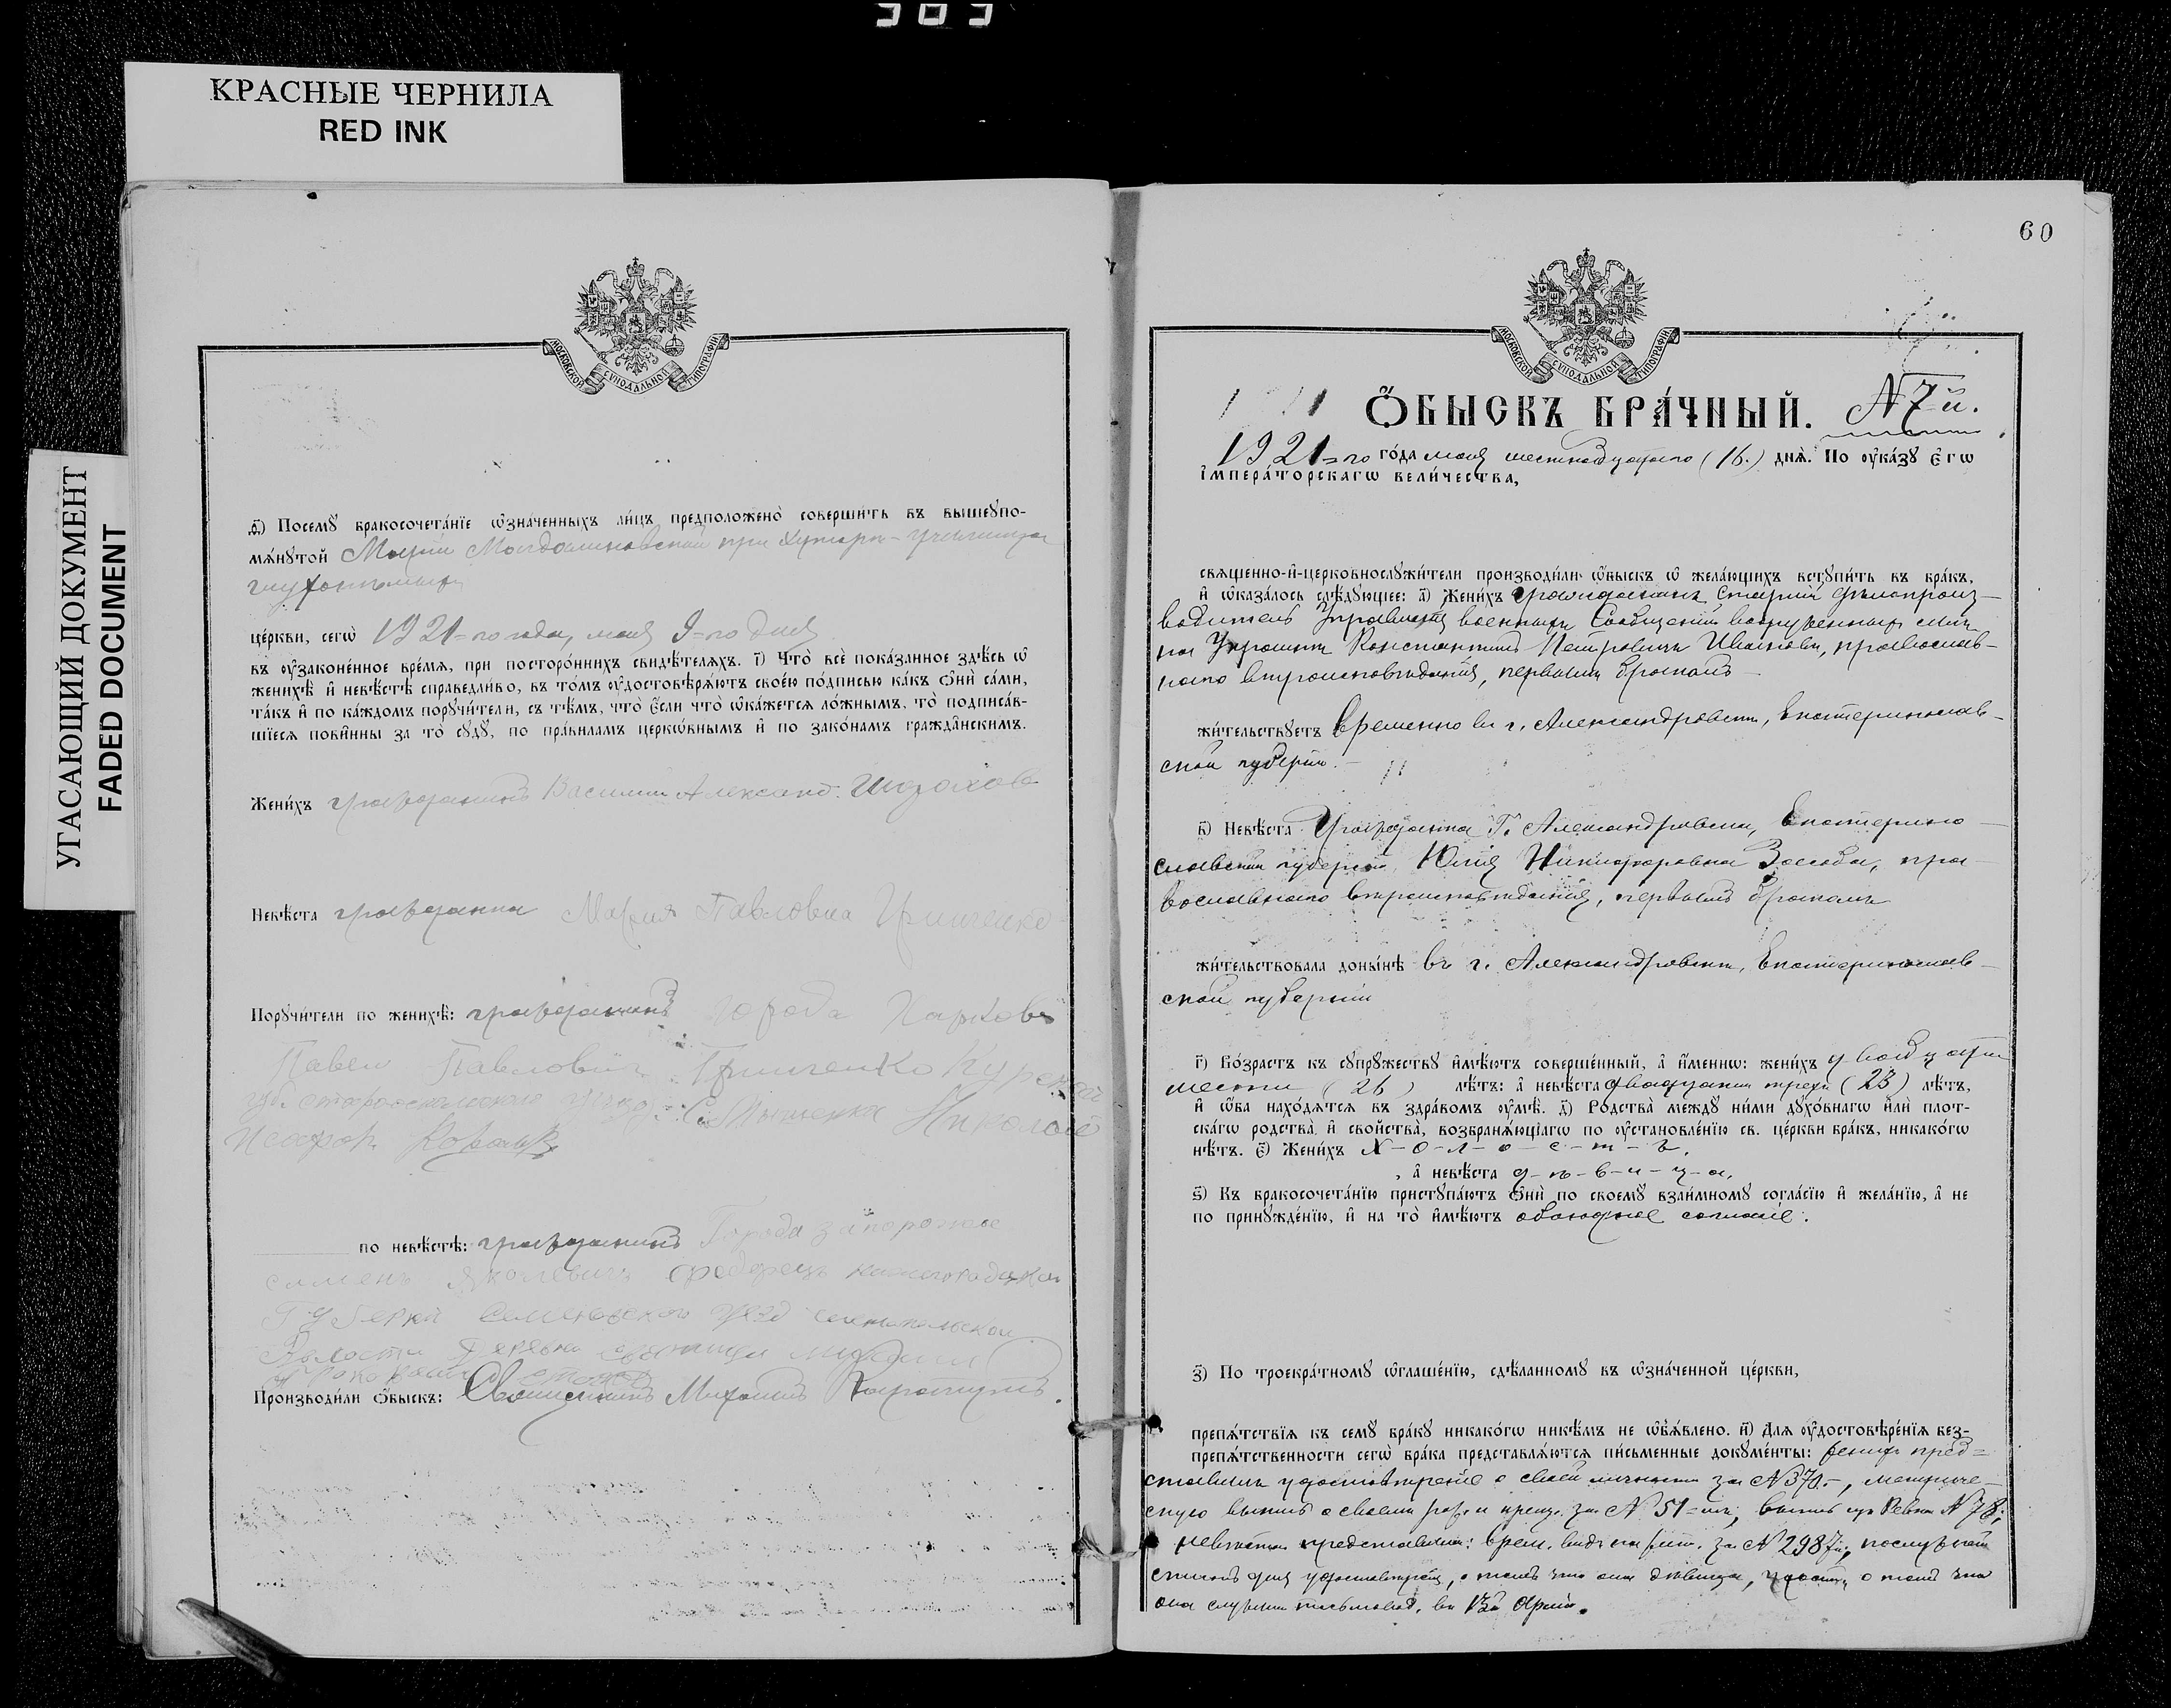 303
КРАСНЫЕ ЧЕРНИЛА
RED INK
УГАСАЮЩИЙ ДОКУМЕНТ
FADED DOCUMENT
МОСКОВСКОЙ СѴНОДАЛЬНОЙ ТИПОГРАФІИ
ѳ҃) Посемꙋ бракосочета́нїе ѡ҆зна́ченныхъ ли́цъ предположено̀ соверши́ть въ вышеꙋпо-
мѧ́нꙋтой Марiи Магдалиновской при Хуторѣ-училища
глухонѣмыхъ
це́ркви, сегѡ̀ 1921-го года, мая 9-го дня
въ ᲂу҆зако́ненное вре́мѧ, при посторо́ннихъ свидѣ́телѧхъ. і҃) Что̀ всѐ пока́занное здѣ́сь ѡ҆
женихѣ̀ и҆ невѣ́стѣ справедли́во, въ то́мъ ᲂу҆достовѣрѧ́ютъ свое́ю по́дписью ка́къ ѻ҆нѝ са́ми,
та́къ и҆ по ка́ждомъ порꙋчи́тели, съ тѣ́мъ, что̀ є҆́сли что̀ ѡ҆ка́жетсѧ ло́жнымъ, то̀ подписа́в-
шїесѧ пови́нны за то̀ сꙋдꙋ̀, по пра́виламъ церко́внымъ и҆ по зако́намъ гражда́нскимъ.
Жени́хъ гражданинъ Василий Александ. Шорохов
Невѣ́ста гражданка Мария Павловна Гринченко
Порꙋчи́тели по женихѣ̀: гражданинъ города Харкова
Павел Павлович Гринченко Курской
губ. старооскольского Николай
по невѣ́стѣ: гражданинъ Города запорожье
семенъ
Губерни Семеновского уезд
Волости Деревни
Производи́ли ѻ҆́быскъ: Священникъ Михаилъ
60
МОСКОВСКОЙ СѴНОДАЛЬНОЙ ТИПОГРАФІИ
Ѻ҆́БЫСКЪ БРА́ЧНЫЙ. N 7-й.
1921-го го́да мая шестнадцатаго (16.) днѧ̀. По ᲂу҆ка́зꙋ Є҆гѡ̀
І҆мпера́торскагѡ вели́чества,
свѧще́нно-и҆-церковнослꙋжи́тели производи́ли ѻ҆́быскъ ѡ҆ жела́ющихъ встꙋпи́ть въ бра́къ,
и҆ ѡ҆каза́лось слѣ́дꙋющее: а҃) Жени́хъ гражданинъ Старшiй дѣлопроиз-
водитель Управленiя военныхъ Сообщенiй вооруженныхъ силъ
на Украинѣ Константинъ Петровичъ Ивановъ, православ-
наго вѣроисповѣданiя, первымъ бракомъ
жи́тельствꙋетъ временно въ г. Александровскѣ, Екатеринослав-
ской губернiи.
в҃) Невѣ́ста Гражданка г. Александровска, Екатерино-
славской губернiи, Юлiя Никифоровна Заева, пра-
вославнаго вѣроисповѣданiя, первымъ бракомъ
жи́тельствовала доны́нѣ въ г. Александровскѣ, Екатеринослав-
ской губернiи
г҃) Во́зрастъ къ сꙋпрꙋ́жествꙋ и҆мѣ́ютъ соверше́нный, а҆ и҆́менно: жени́хъ двадцати
шести (26) лѣ́тъ: а҆ невѣ́ста двадцати трехъ (23) лѣ́тъ,
и҆ ѻ҆́ба нахо́дѧтсѧ въ здра́вомъ ᲂу҆мѣ̀. д҃) Родства̀ междꙋ̀ ни́ми дꙋхо́внагѡ и҆лѝ плот-
ска́гѡ родства̀ и҆ свойства̀, возбранѧ́ющагѡ по ᲂу҆становле́нїю св. це́ркви бра́къ, никако́гѡ
нѣ́тъ. є҃) Жени́хъ х-о-л-о-с-т-ъ,
а҆ невѣ́ста д-ѣ-в-и-ц-а.
ѕ҃) Къ бракосочета́нїю пристꙋпа́ютъ ѻ҆нѝ по своемꙋ̀ взаи́мномꙋ согла́сїю и҆ жела́нїю, а҆ не
по принꙋжде́нїю, и҆ на то̀ и҆мѣ́ютъ обоюдное согласiе.
з҃) По троекра́тномꙋ ѡ҆глаше́нїю, сдѣ́ланномꙋ въ ѡ҆зна́ченной це́ркви,
препѧ́тствїѧ къ семꙋ̀ бра́кꙋ никако́гѡ никѣ́мъ не ѡ҆б̾ѧ́влено. и҃) Длѧ ᲂу҆достовѣре́нїѧ без-
препѧ́тственности сегѡ̀ бра́ка представлѧ́ютсѧ пи́сьменные докꙋме́нты: женихъ пред-
ставилъ удостовѣренiе о своей личности за N 370-, метриче-
скую выпись о своемъ рожд. и крещ. за N 51-мъ, выпись изъ Ревкома N 78;
невѣста представила: врем. видъ на жит. за N 2987й, послужной
списокъ для удостовѣренiя, о томъ что она дѣвица, о томъ что
она служила письмовод. въ 13й Армiи.